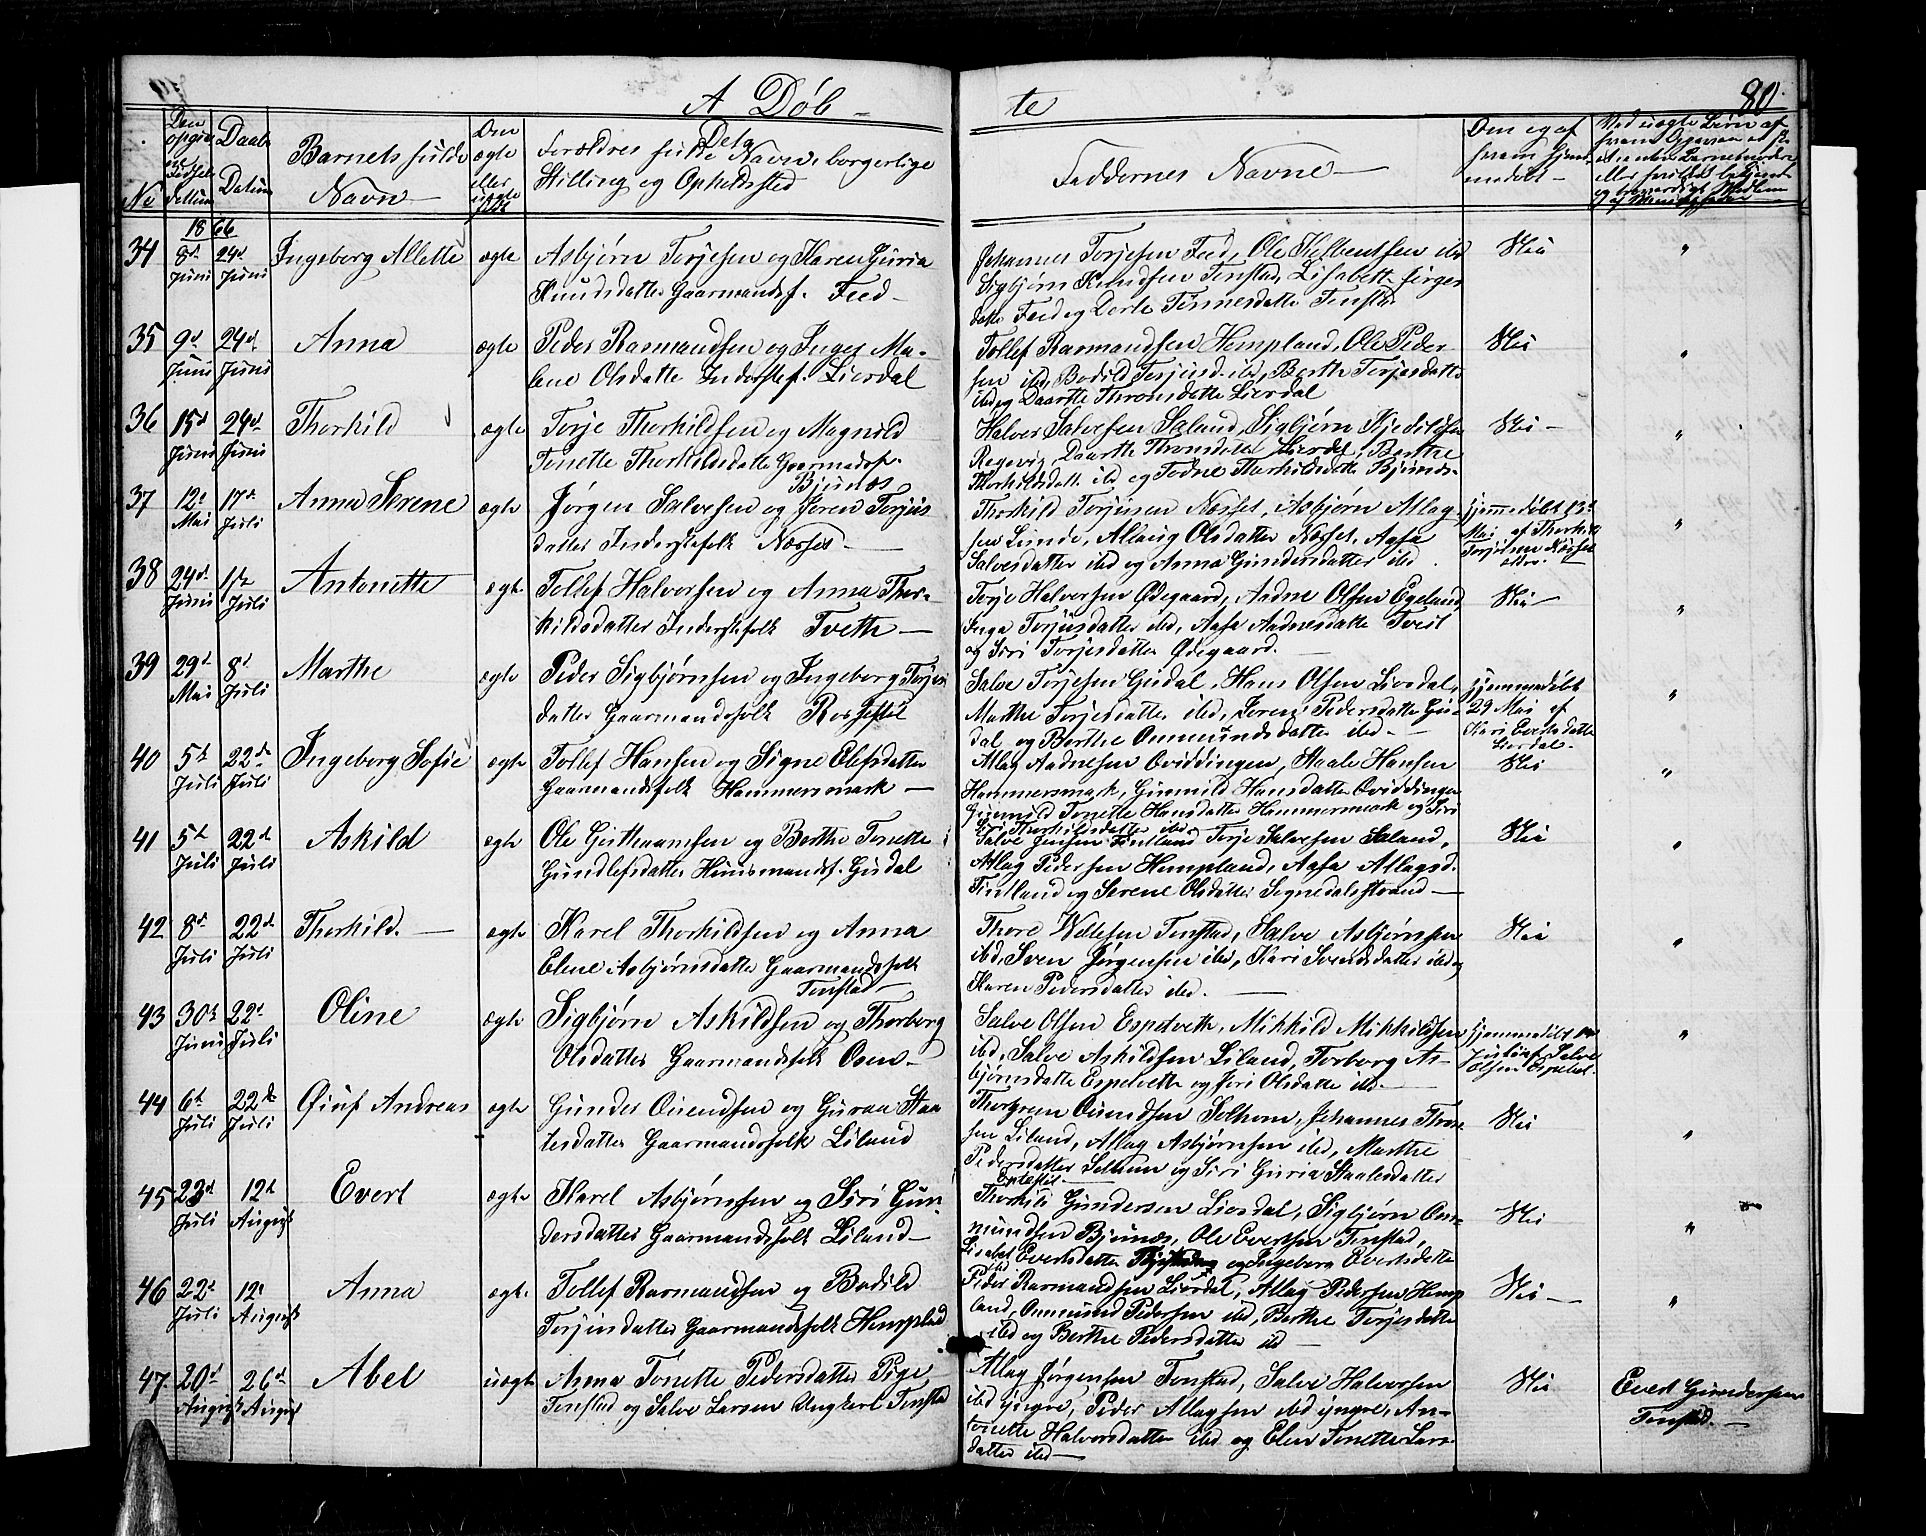 A Døb - te 80.
No
Barnets fulde Navn
Den ægte eller uægte født
Forældres fulde Navne, borgerlige Stilling og Opholdssted
Faddernes Navne
1866
34 8d Juni 24d Juni Ingeborg Allette ægte Asbjørn Torjesen og Karen Guria
Knudsdatter Gaarmandsf. Feed
Johannes Torjesen Feed, Ole
Sigbjørn Knudsen Tonstad, Lisabett
datter Feed og Dorte Tønnesdatter Tonstad
Nei "
35 9d Juni 24d Juni Anna ægte Peder Rasmundsen og Inger Ma-
lene Olsdatte Inderstef. Liordal
Tollef Rasmundsen Hompland, Ole Peder
sen ibd, Bodild Torjusd. ibd, Berthe Torjesdatte
ibd og Daarthe Thronsdatte Liordal
Nei "
36 15d Juni 24d Juni Thorkild ægte Torje Thorkildsen og Magnild
Tonette Thorkildsdatte Gaarmandsf.
Bjunæs
Halvor Salvesen Saland, Sigbjørn
Daarthe Thronsdatte Liordal, Berthe
Thorkildsdatte ibd og Todne Thorkildsdatte Bjunæs
Nei "
37 12d Mai 17d Juli Anna Serene ægte Jørgen Salvesen og Soren Torjus
datter Inderstefolk Næsset
Thorkild Torjusen Næsset, Asbjørn Atlag
sen Lunde, Atlaug Olsdatter Næsset, Aasa
Salvesdatter ibd og Anna Gundersdatter ibd.
hjemmedøbt 13d
Mai af Thorkild
Torjusen Næsset
"
38 24d Juni 1ste Juli Antonette ægte Tollef Halvorsen og Anna Thor-
kildsdatter Inderstefolk Tveth
Torje Halvorsen Ødegaard, Aadne Olsen Egeland,
Inga Torjusdatter ibd, Aasa Aadnesdatte Tveit
og Siri Torjesdatter Ødegaard.
Nei "
39 29d Mai 8d Juli Marthe ægte Peder Sigbjørnsen og Ingeborg Torjes
datter Gaarmandsfolk Rossestøl
Salve Torjesen Gudal, Hans Olsen Liordal,
Marthe Torjesdatter ibd, Soren Pedersdatter Gu-
dal og Berthe Onmundsdatter ibd.
hjemmedøbt
29 Mai af
Kari Evertsdatte
Liordal.
"
40 5d Juli 22de Juli Ingeborg Sofie ægte Tollef Hansen og Signe Olefsdatter
Gaarmandsfolk Hammersmark
Atlag Aadnesen Oviddingen, Staale Hansen
Hammersmark, Gunnild Hansdatter Oviddingen
Gunnild Tonette Hansdatter Hammersmark og Siri
Thorkildsdatter ibd.
Nei "
41 5d Juli 22d Juli Askild ægte Ole Guttormsen og Berthe Tonette
Gundlefsdatter Huusmandsf. Gudal
Salve Jensen Fintland Torje Salvesen Saland,
Atlag Pedersen Hompland, Aasa Atlagsd.
Fintland og Serene Olsdatter Segnedalsstrand
Nei "
42 8d Juli 22d Juli Thorkild. ægte Karel Thorkildsen og Anna
Elene Asbjørnsdatte Gaarmandsfolk
Tonstad
Thore Tonstad, Salve Asbjørnsen
ibd, Sven Jørgensen ibd, Kari Svendsdatter ibd og
Karen Pedersdatter ibd.
Nei "
43 30d Juni 22d Juli Oline ægte Sigbjørn Askildsen og Thorborg
Olsdatter Gaarmandsfolk Osen
Salve Olsen Espetveth, Mikkild Mikkildsen
ibd, Salve Askildsen Liland, Torborg As-
bjørnsdatte Espetveth og Siri Olsdatte ibd.
hjemmedøbt
Juli af Salve
Olsen Espetvet.
"
44 6d Juli 22de Juli Øiuf Andreas ægte Gunder Ouendsen og Guroa Staa
lesdatter Gaarmandsfolk Liland
Thorgrim Ouendsen Solhom, Johannes Thor
sen Liland, Atlag Asbjørnsen ibd, Marthe
Pedersdatter Solhom og Siri Guria Staalesdatter
Nei "
45 23d Juli 12d August Evert ægte Karel Asbjørnsen og Siri Gun-
dersdatter Gaarmandsfolk Liland
Thorkild Gundersen Liordal, Sigbjørn On-
mundsen Bjunæs, Ole Evertsen Tonstad,
Lisabet Evertsdatter og Ingeborg Evertsdatte
ibd
Nei "
46 22d Juli 12d August Anna ægt. Tollef Rasmundsen og Bodild
Torjusdatter Gaarmandsfolk Homplad
Peder Rasmundsen Liordal, Atlag Pedersen Homp
land, Onmund Pedersen ibd, Berthe Torjesdatte
ibd og Berthe Pedersdatter ibd
Nei "
47. 20d August 26d August Abel uægte Anna Tonette Pedersdatter Pige,
Tonstad og Salve Larsen Ungkarl Tonstad
Atlag Jørgensen Tonstad, Salve Halvorsen
ibd yngre, Peder Atlagsen ibd yngre, An-
tonette Halvorsdatter ibd og Elen Tonette Lars
datter ibd
Nei
Evert Gundersen
Tonstad.